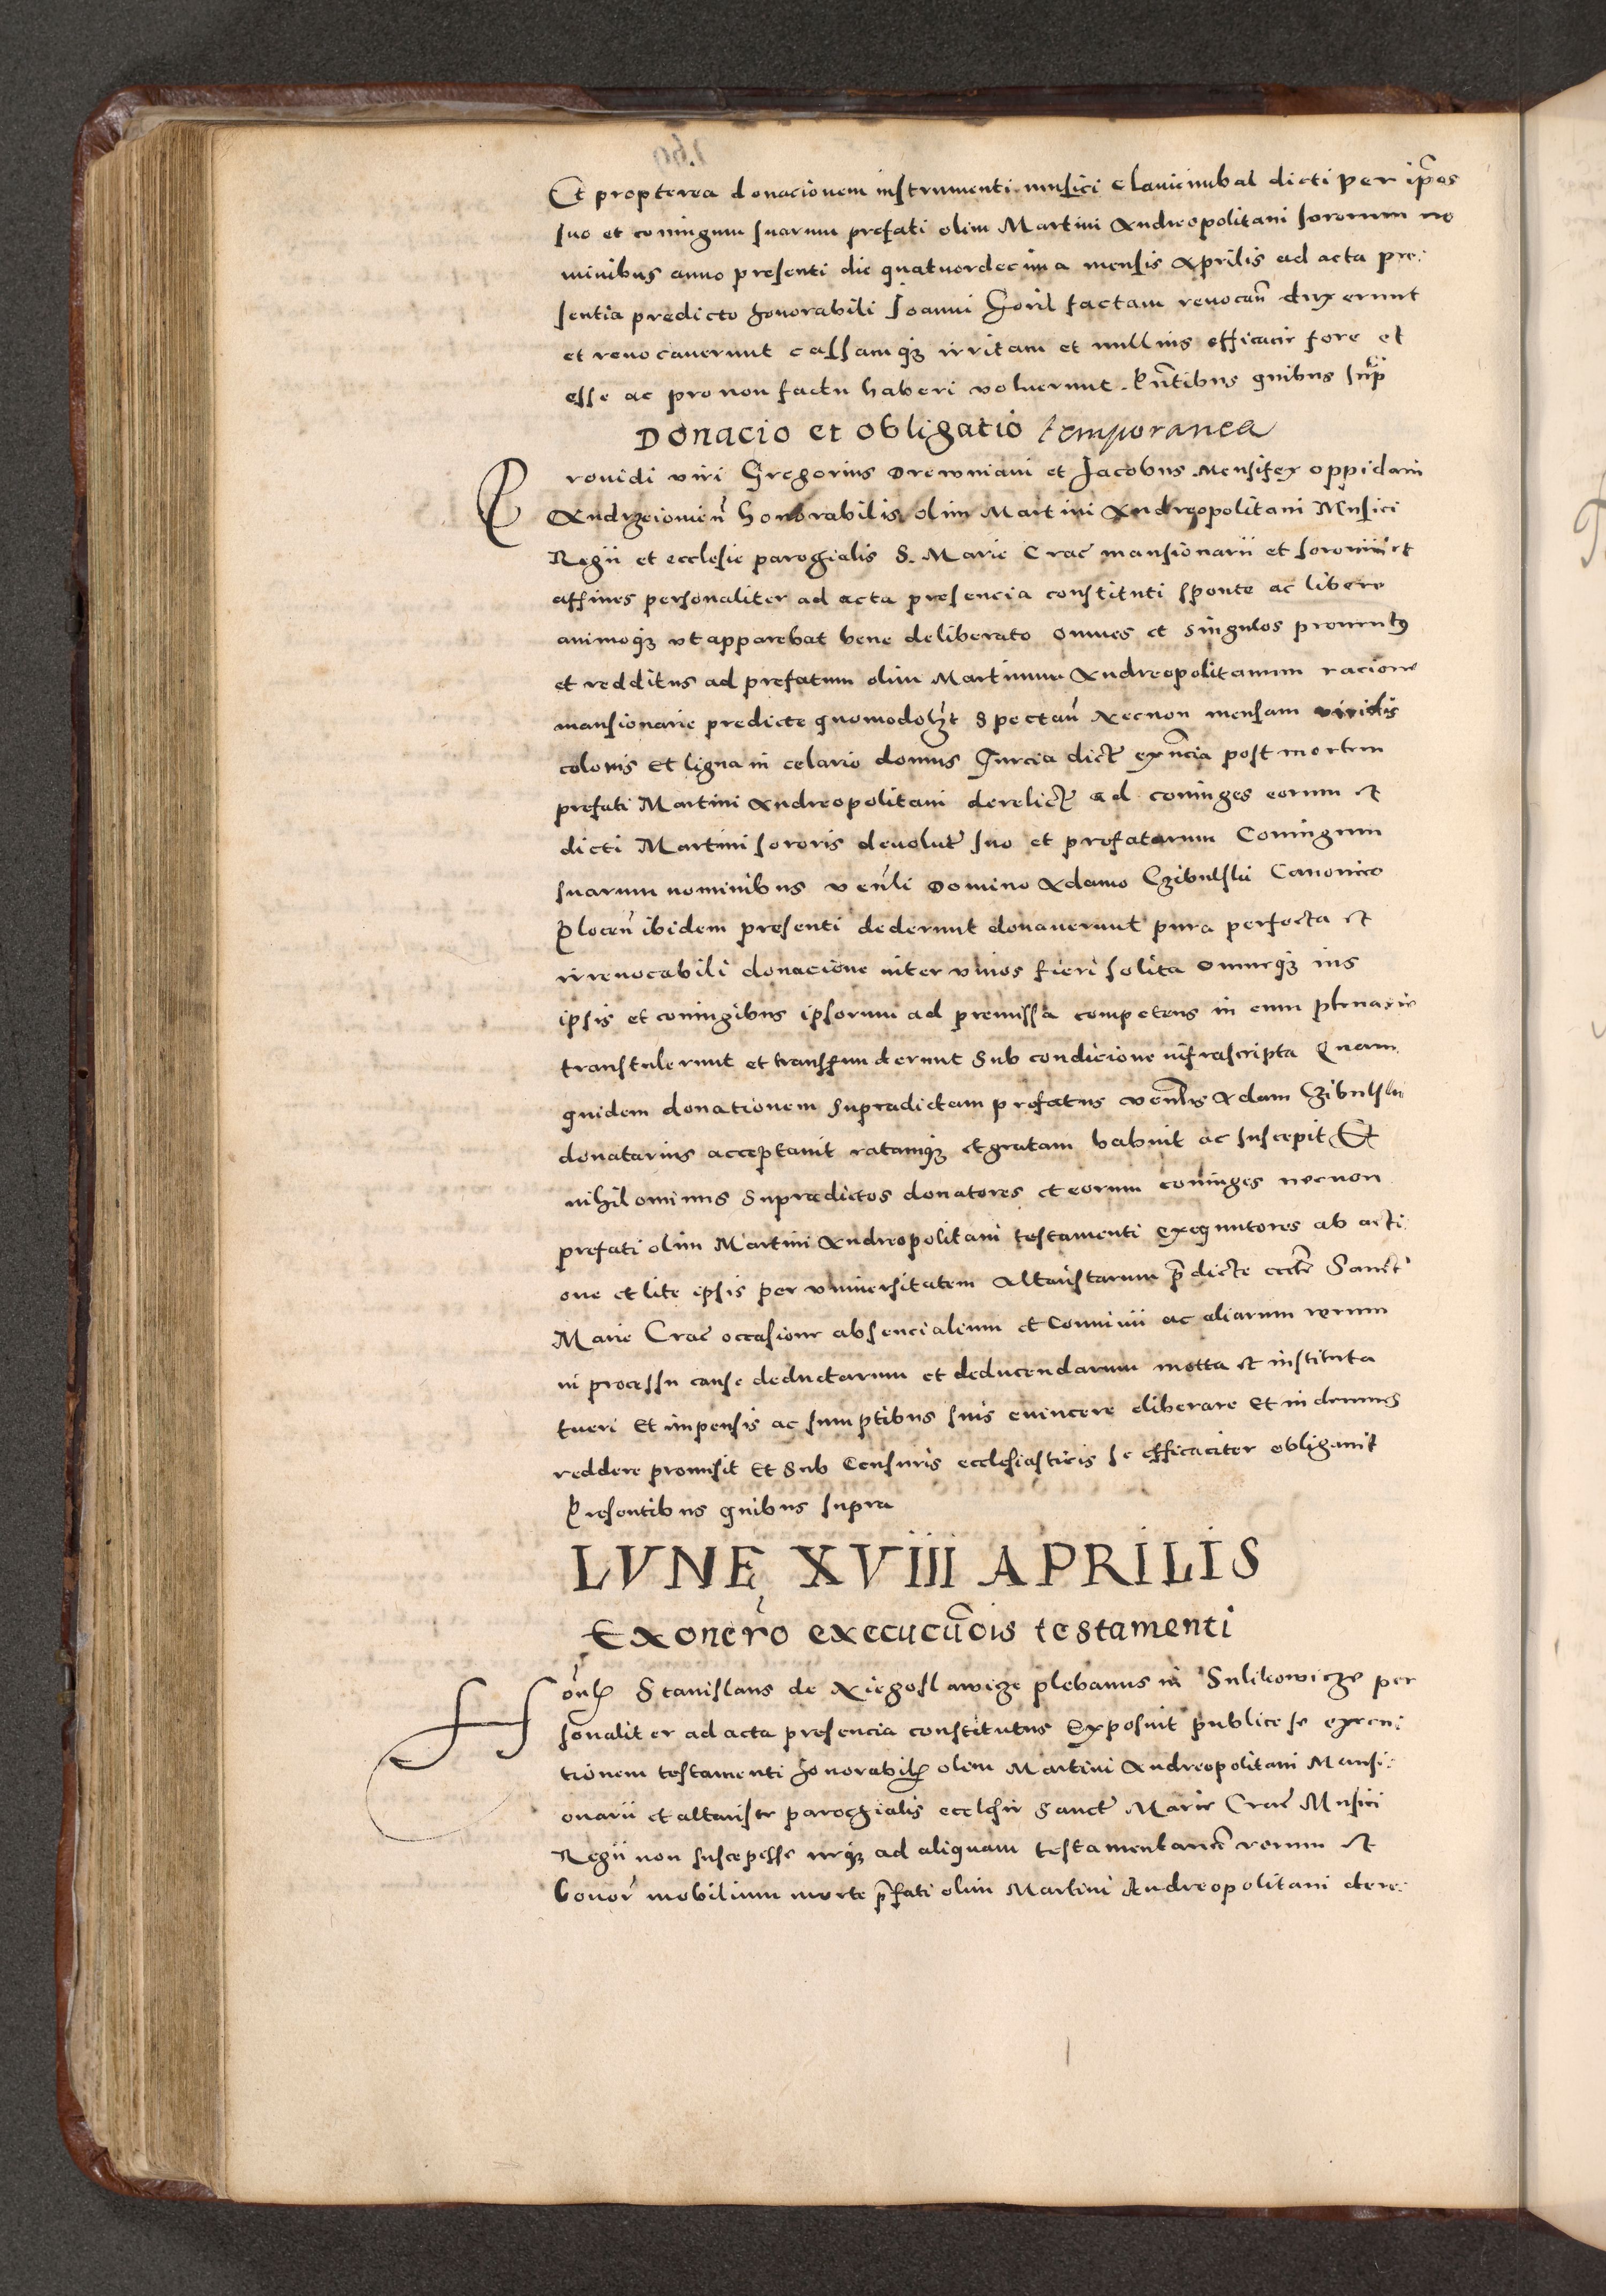 Et propterea donacionem instrumenti musici clauicimbal dicti per ip̃os
suo et coniugum suarum prefati olim Martini Andreopolitani sororum no
minibus anno presenti die quatuordecima mensis Aprilis ad acta pre:
sentia predicto honorabili Joanni factam reuocan̄ duxerunt
et reuocauerunt cassamq3 irritam et nullius efficacie fore et
esse ac pro non factu haberi voluerunt. P̃ntibus quibus sup̃
Donacio et obligatio temporanea
Prouidi viri Gregorius Drewniani et Jacobus Mensifex oppidani
Andrzeiouien̄ honorabilis olim Martini Andreopolitani Musici
Regii et ecclesie parochialis S. Marie Crac̃ mansionarii et sororii et
affines personaliter ad acta presencia constituti sponte ac libere
animoq3 vt apparebat bene deliberato omnes et singulos prouentus
et redditus ad prefatum olim Martinum Andreopolitanum racione
mansionarie predicte quomodolĩt spectan̄ Necnon mensam viridis
coloris et ligna in celario domus dicte exñcia post mortem
prefati Martini Andreopolitani derelicte ad coniuges eorum et
dicti Martini sororis deuolut suo et prefatarum Coniugum
suarum nominibus ven̄li Domino Adamo Czibulski Canonico
Plocen̄ ibidem presenti dederunt donauerunt pura perfecta et
irreuocabili donacione inter viuos fieri solita omneq3 ius
ipsis et coniugibus ipsorum ad premissa competens in eum plenarie
transtulerunt et transfunderunt Sub condicione infrascripta Quam
quidem donationem supradictam prefatus ven̄lis Adam Czibulski
donatarius acceptauit ratamq3 et gratam habuit ac suscepit Et
nihilominus supradictos donatores et eorum coniuges necnon
prefati olim Martini Andreopolitani testamenti exequutores ab acti:
one et lite ipsis per vniuersitatem Altaristarum p̃dicte eccl̃ie Sancte
Marie Crac̃ occasione absencialium et Conuiuii ac aliarum rerum
in processu cause deductarum et deducendarum motta et instituta
tueri et impensis ac sumptibus suis euincere eliberare et indemnes
reddere promisit Et sub Censuris ecclesiasticis se efficaciter obligauit
Presentibus quibus supra
LVNĘ XVIII APRILIS
Exonerõ execucūois testamenti
Hon̄lis Stanislaus de Niegoslawicze plebanus in Sulikowicze per
sonaliter ad acta presencia constitutus Exposuit publice se execu:
tionem testamenti honorabilis olim Martini Andreopolitani Mansi:
onarii et altariste parochialis ecclesie Sancte Marie Crac̃ Musici
Regii non suscepesse neq3 ad aliquam rerum et
bonor̃ mobilium morte p̃fati olim Martini Andreopolitani dere: